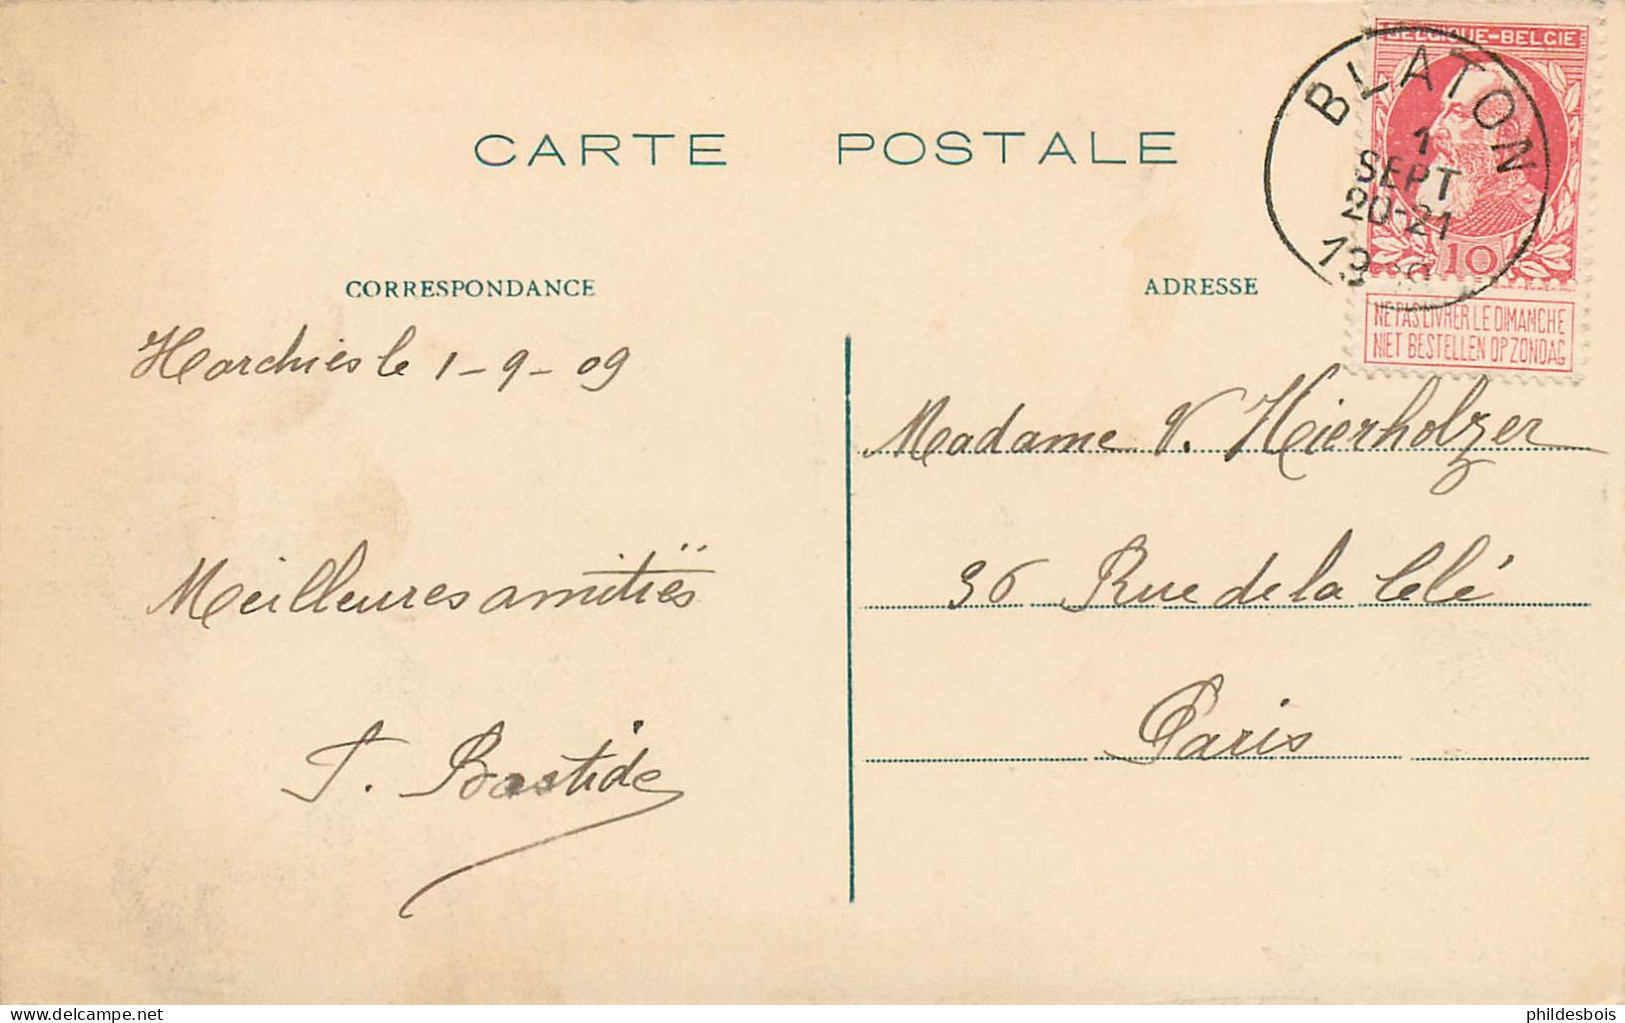 CARTE POSTALE
BELGIQUE-BELGIE
BLATON
1
SEPT
20-21
19
10
NE PAS LIVRER LE DIMANCHE
NIET BESTELLEN OP ZONDAG
CORRESPONDANCE
Harchies le 1-9-09
Meilleures amitiés
J. Bastide
ADRESSE
Madame V. Hierholzer
36 Rue de la Clé
Paris
delcampe.net
phildesbois